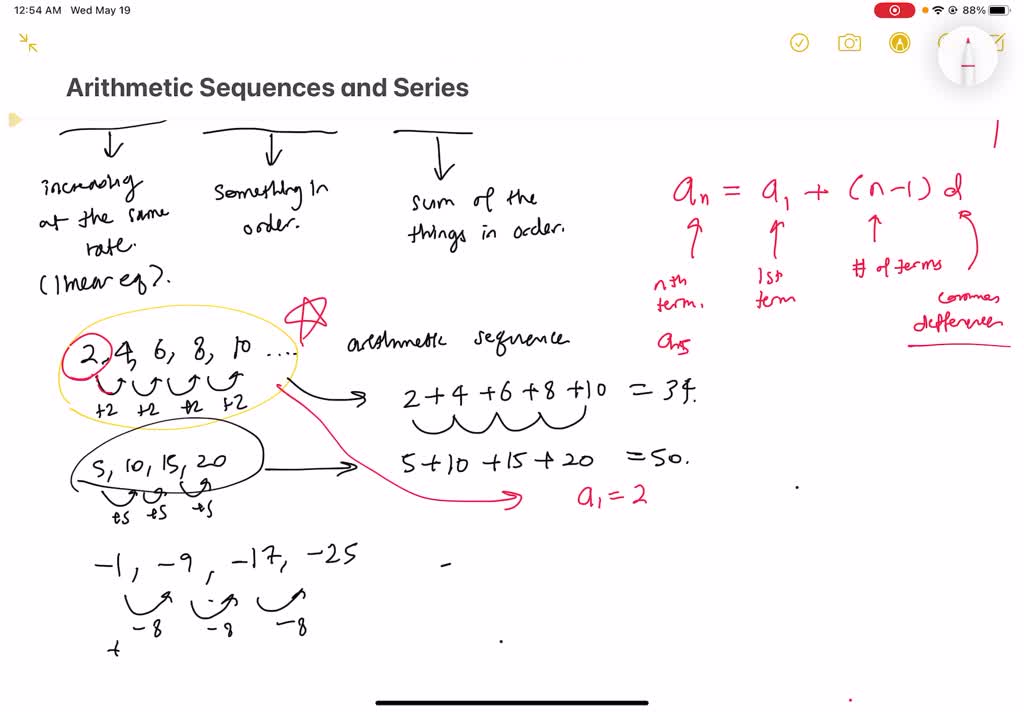 12:54 AM Wed May 19
88%
Arithmetic Sequences and Series
increasing
at the same
rate.
(linear eq).
something in
order.
sum of the
things in order.
an = a1 + (n-1) d
nth
term.
1st
term
# of terms
common
difference
2, 4, 6, 8, 10 ....
+2 +2 +2 +2
arithmetic sequence
2+4+6+8+10 = 34.
5, 10, 15, 20
+5 +5 +5
5+10+15+20 =50.
a1=2
-1, -9, -17, -25
-8 -8 -8
+
-